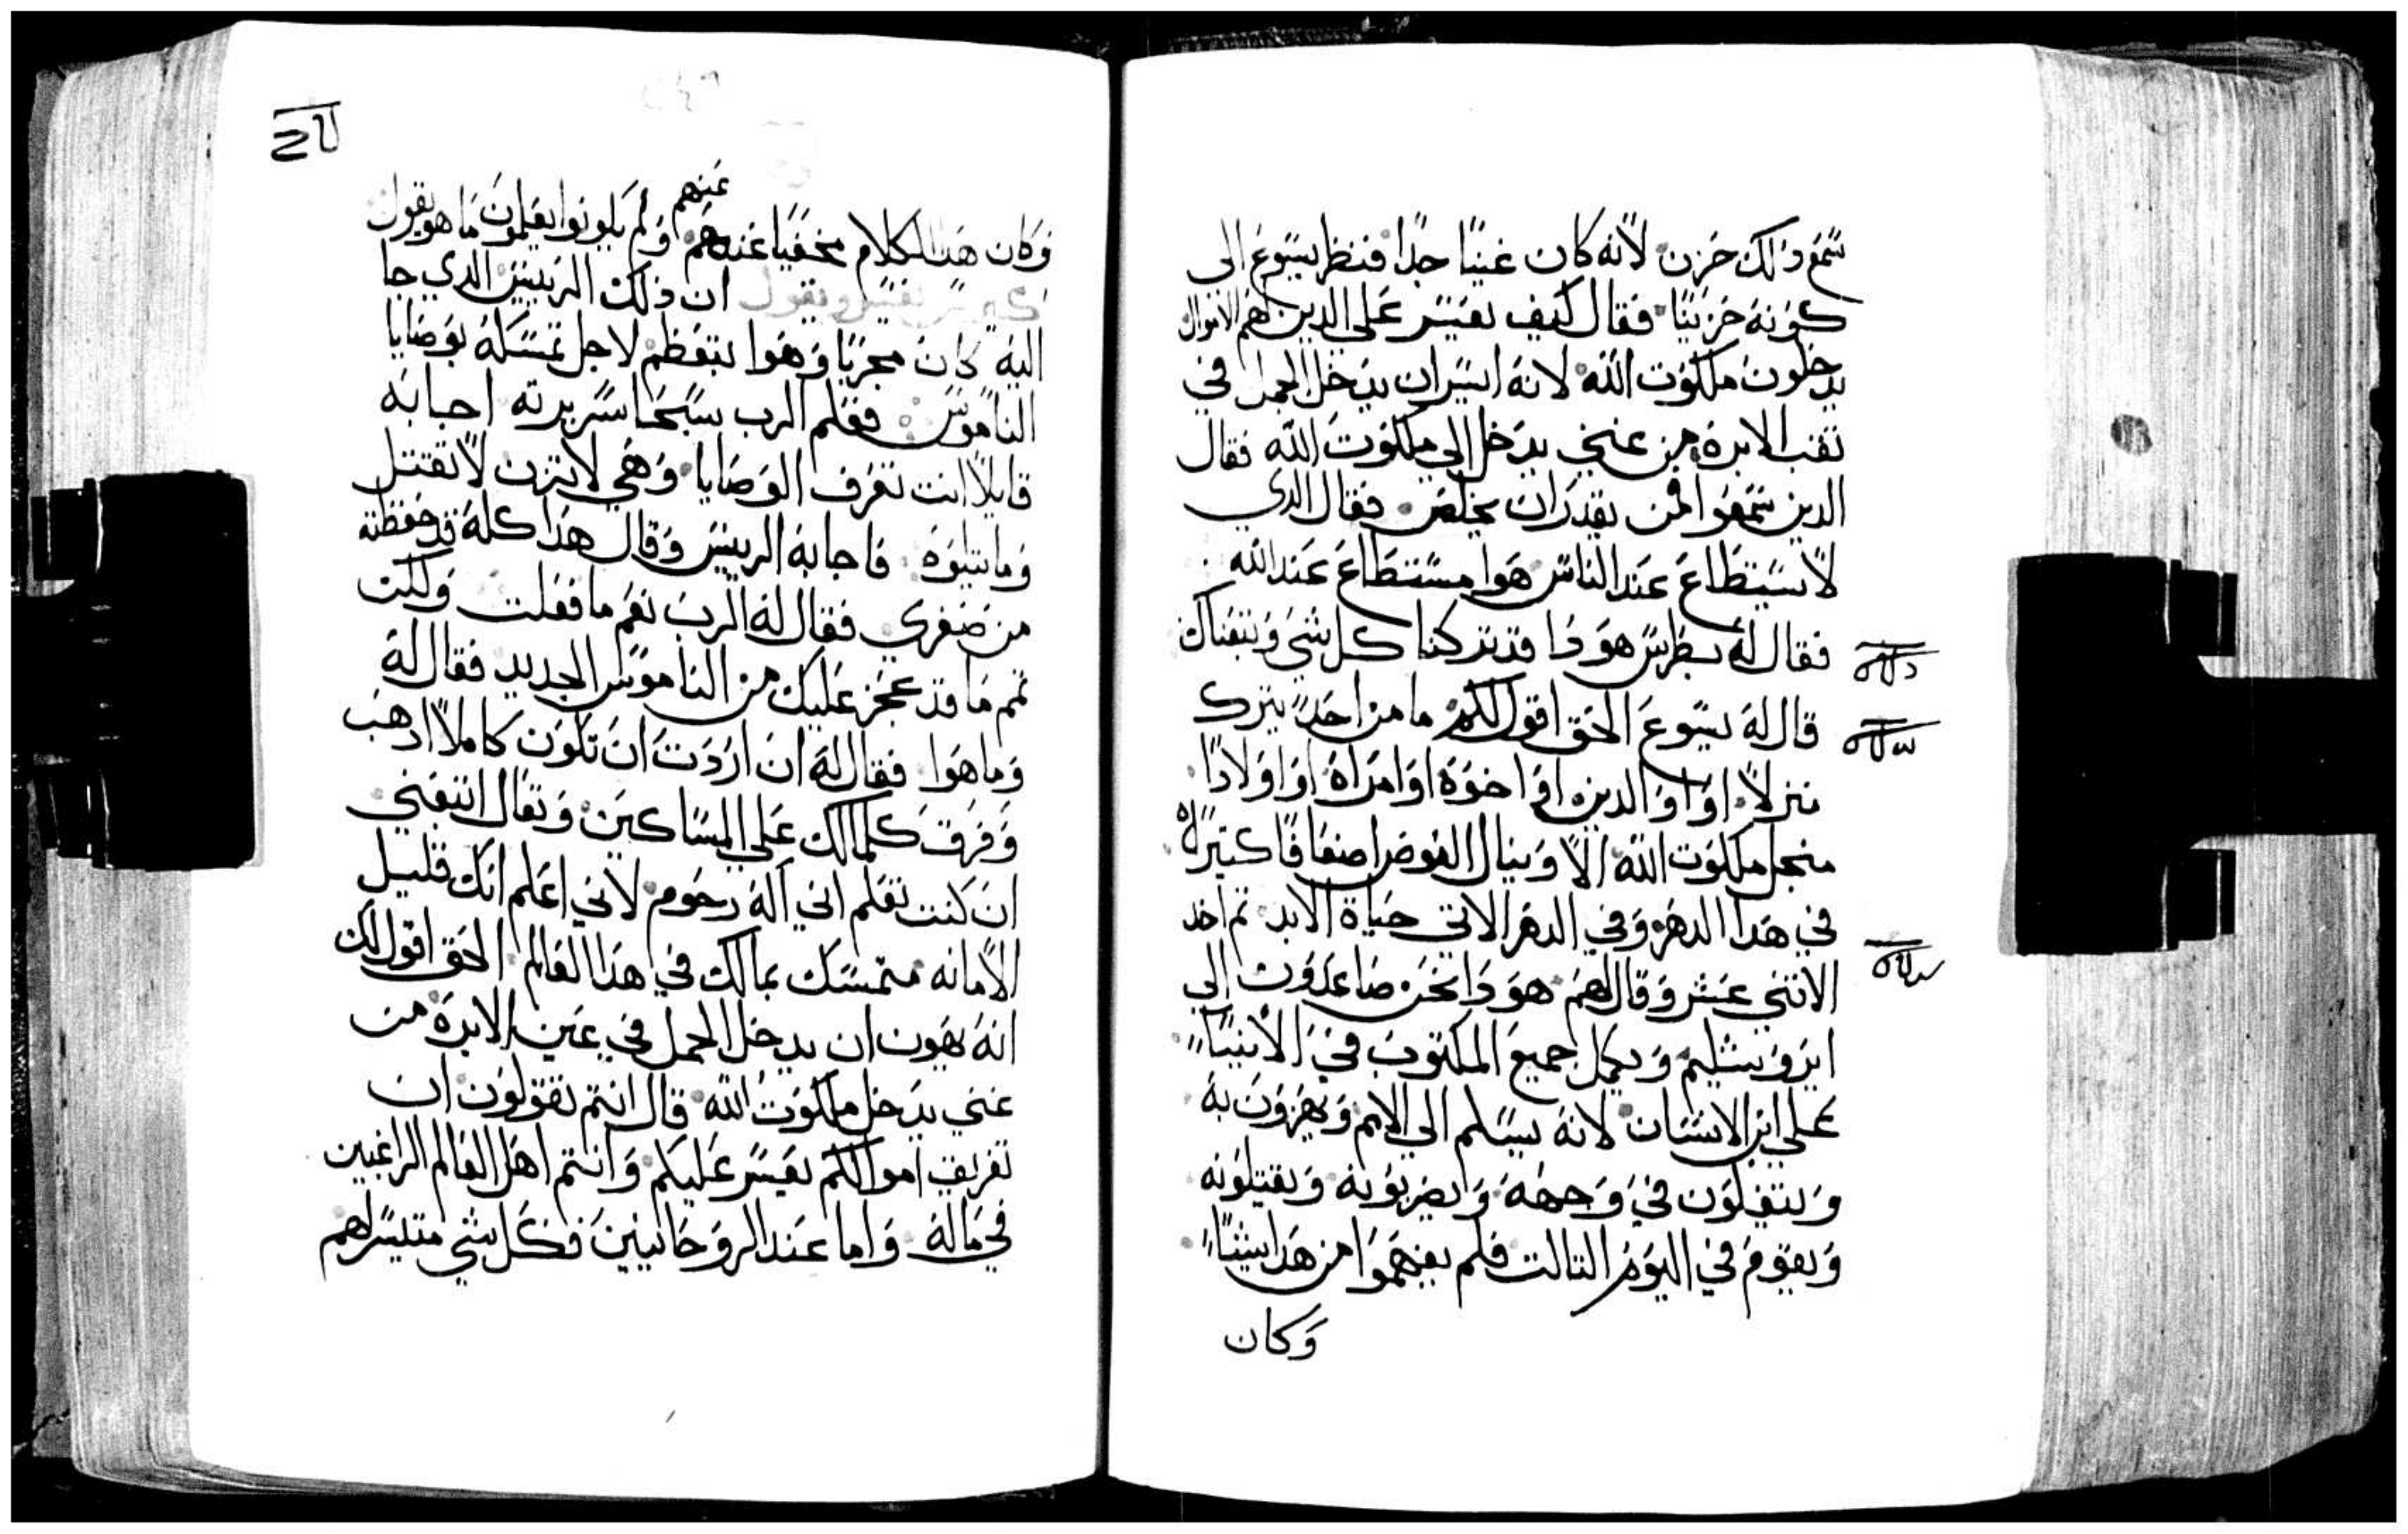 سمع ذلك حزن لانه كان غنيًا جدًا فنظر يسوع الى
كونه حزينًا فقال كيف يعسر على الدين لهم الاموال
يدخلون ملكوت الله لانه ايسر ان يدخل الجمل في
تقب الابرة من عني يدخل الي ملكوت الله فقال
الدين سمعوا فمن يقدر ان يخلص فقال الدي
لا يستطاع عند الناس هوا مستطاع عند الله
فقال له بطرس هودا قد تركنا كل شي وتبعناك
قال له يسوع الحق اقول لكم ما من احد يترك
منزلا او والدين او اخوة او امراة او اولادًا
منجل ملكوت الله الا وينال العوض اضعافًا كتيرة
في هدا الدهر وفي الدهر الاتي حياة الابد تم اخد
الاتني عشر وقال لهم هودا نحن صاعدون الي
ايروشليم ويكمل جميع المكتوب في الانبيا
علي ابن الانسان لانه يسلم الي الامم ويهزون به
ويتفلون في وجهه ويضربونه ويقتلونه
ويقوم في اليوم التالت فلم يفهموا من هدا شيًا
وكان
عنهم
وكان هدا الكلام مخفيًا عنهم ولم يكونوا يعلمون ما هو يقول
ان دلك الرييس الدي جا
اليه كان مجربًا وهوا يتعظم لاجل تمسكه بوصايا
الناموس فعلم الرب سريرته اجابه
قايلًا انت تعرف الوصايا وهي لا تزن لا تقتل
وما يتلوه فاجابه الرييس وقال هدا كله قد حفظته
من صغري فقال له الرب نعم ما فعلت ولكن
تمم ما قد عجز عليك من الناموس الجديد فقال له
وما هوا فقال له ان اردت ان تكون كاملًا ادهب
وفرق كلمالك علي المساكين وتعال اتبعني
ان كنت تعلم اني اله رحوم لاني اعلم انك قليل
الامانه متمسك بمالك في هدا العالم الحق اقول لك
انه يهون ان يدخل الجمل في عين الابرة من
عني يدخل ملكوت الله قال انتم تقولون ان
تفريق اموالكم يعسر عليكم وانتم اهل العالم الراغبين
في ماله واما عند الروحانيين فكل شي متيسر لهم